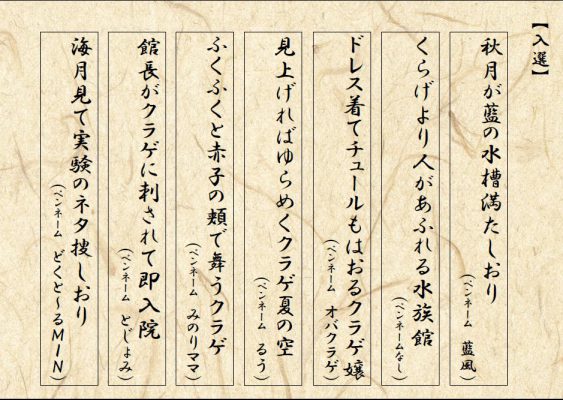 【入選】
秋月が藍の水槽満たしおり
(ペンネーム 藍風)
くらげより人があふれる水族館
(ペンネームなし)
ドレス着てチュールもはおるクラゲ嬢
(ペンネーム オバクラゲ)
見上げればゆらめくクラゲ夏の空
(ペンネーム るう)
ふくふくと赤子の頬で舞うクラゲ
(ペンネーム みのりママ)
館長がクラゲに刺されて即入院
(ペンネーム とじょみ)
海月見て実験のネタ捜しおり
(ペンネーム どくと~るMIN)